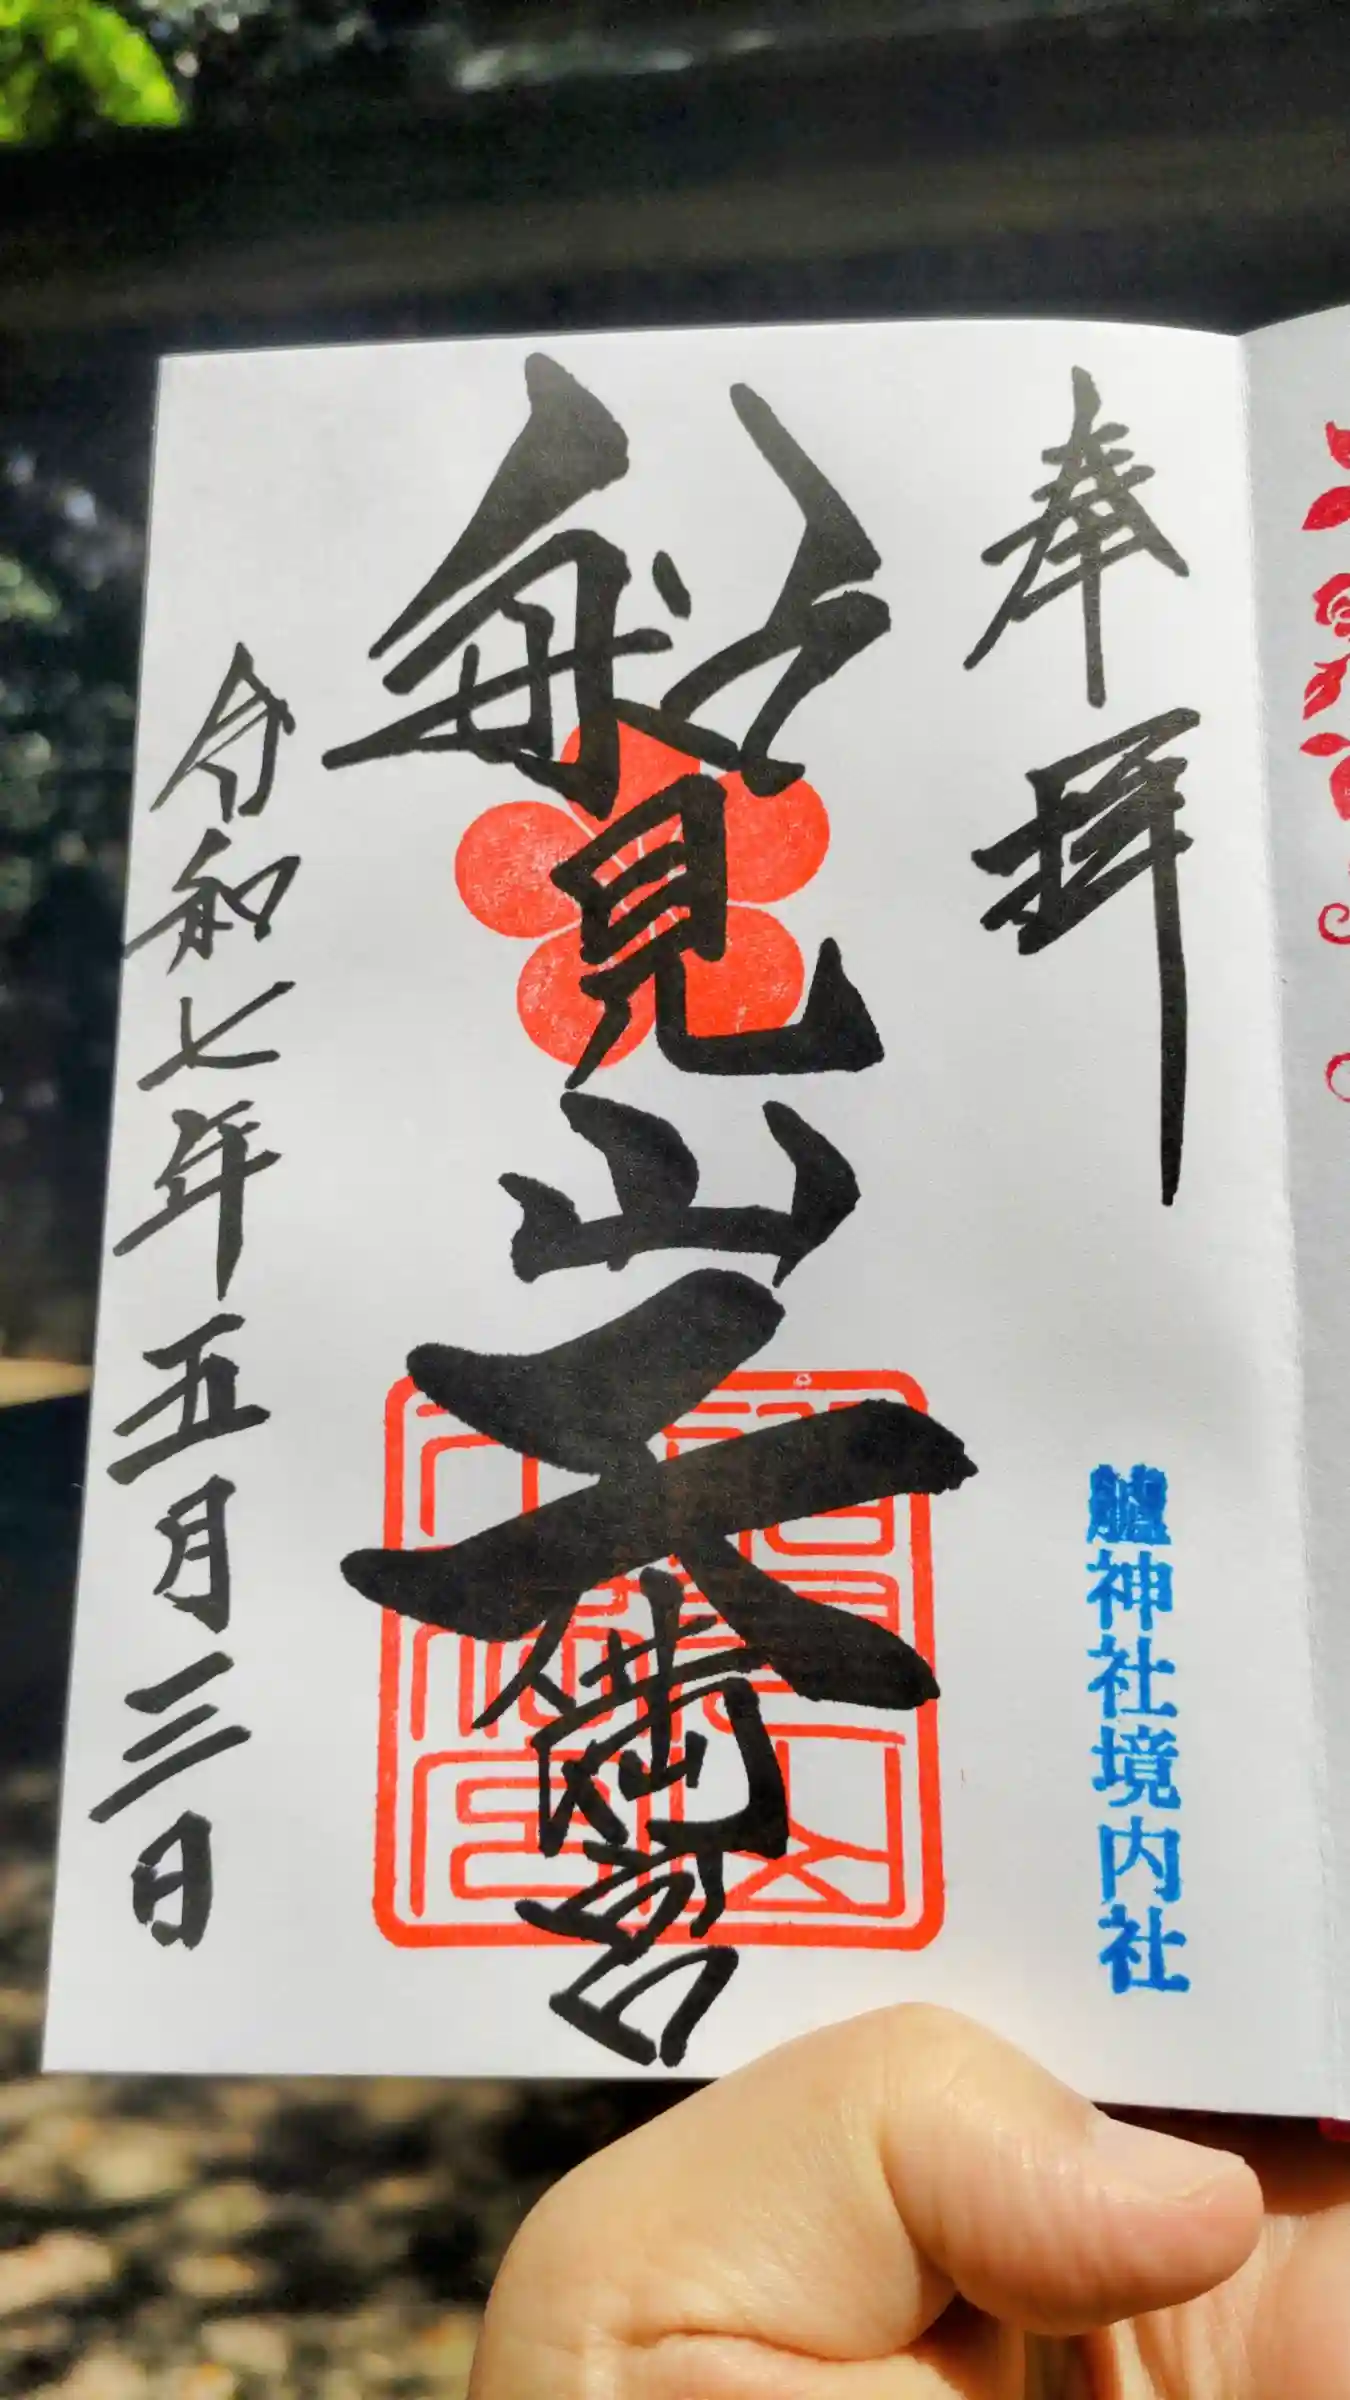 奉拝
艫神社境内社
船見山天満宮
令和七年五月三日